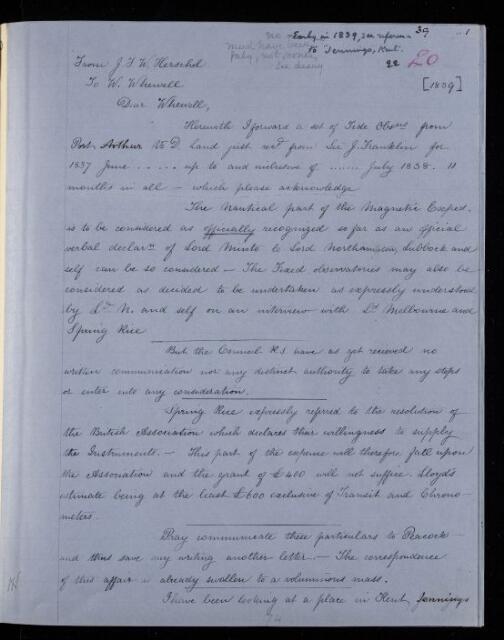 no Early in 1839, see reference 39 1
must have been to Jennings, Kent.
July, not June, 22 20
See diary
From J. F. W. Herschel [1839]
To W. Whewell
Dear Whewell,
Herewith I forward a set of Tide Obsns from
Port Arthur V. D. Land just recd from Sir J. Franklin for
1837 June ..... up to and inclusive of ....... July 1838. 11
months in all — which please acknowledge
The Nautical part of the Magnetic Exped.
is to be considered as officially recognized so far as an official
verbal declarn of Lord Minto to Lord Northampton, Lubbock and
self can be so considered — The Fixed observatories may also be
considered as decided to be undertaken as expressly understood
by Ld N. and self on an interview with Ld Melbourne and
Spring Rice
But the Council R.S. have as yet received no
written communication nor any distinct authority to take any steps
or enter into any consideration.
Spring Rice expressly referred to the resolution of
the British Association which declares their willingness to supply
the Instruments. — This part of the expense will therefore fall upon
the Association and the grant of £400 will not suffice. Lloyd's
estimate being at the least £600 exclusive of Transit and Chrono-
meters.
Pray communicate these particulars to Peacock —
and thus save my writing another letter. — The correspondence
of this affair is already swollen to a voluminous mass.
I have been looking at a place in Kent, Jennings